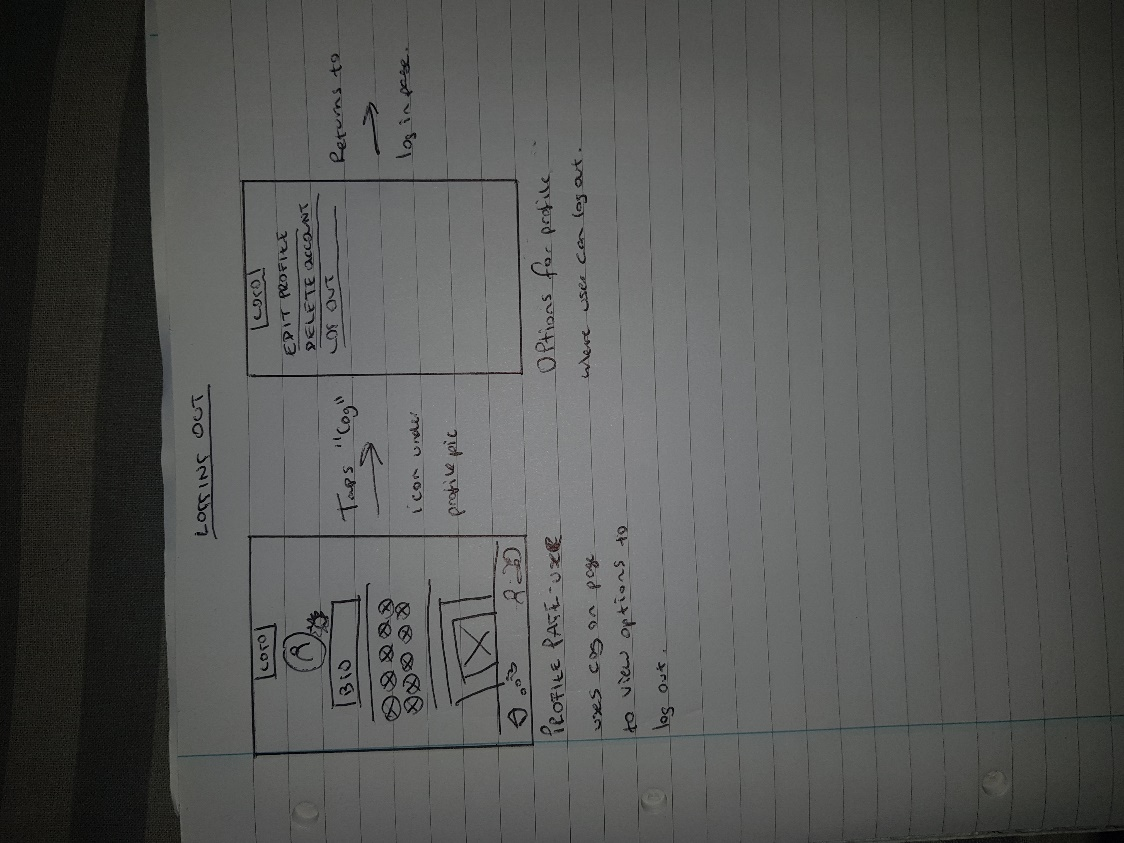 LOGGING OUT
LOGO
BIO
PROFILE PAGE - USER
uses cog on page
to view options to
log out.
Taps "Cog"
icon under
profile pic
LOGO
EDIT PROFILE
DELETE ACCOUNT
LOG OUT
Options for profile
where user can log out.
Returns to
log in page.